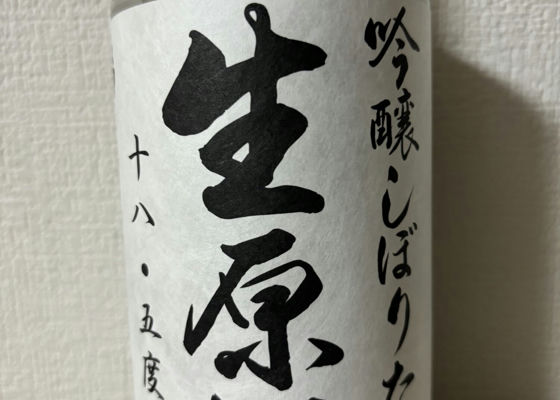 吟醸しぼりた
生原
十八・五度